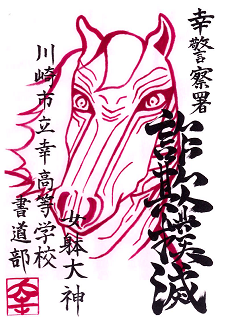 幸警察署
詐欺撲滅
女躰大神
川崎市立幸高等学校
書道部